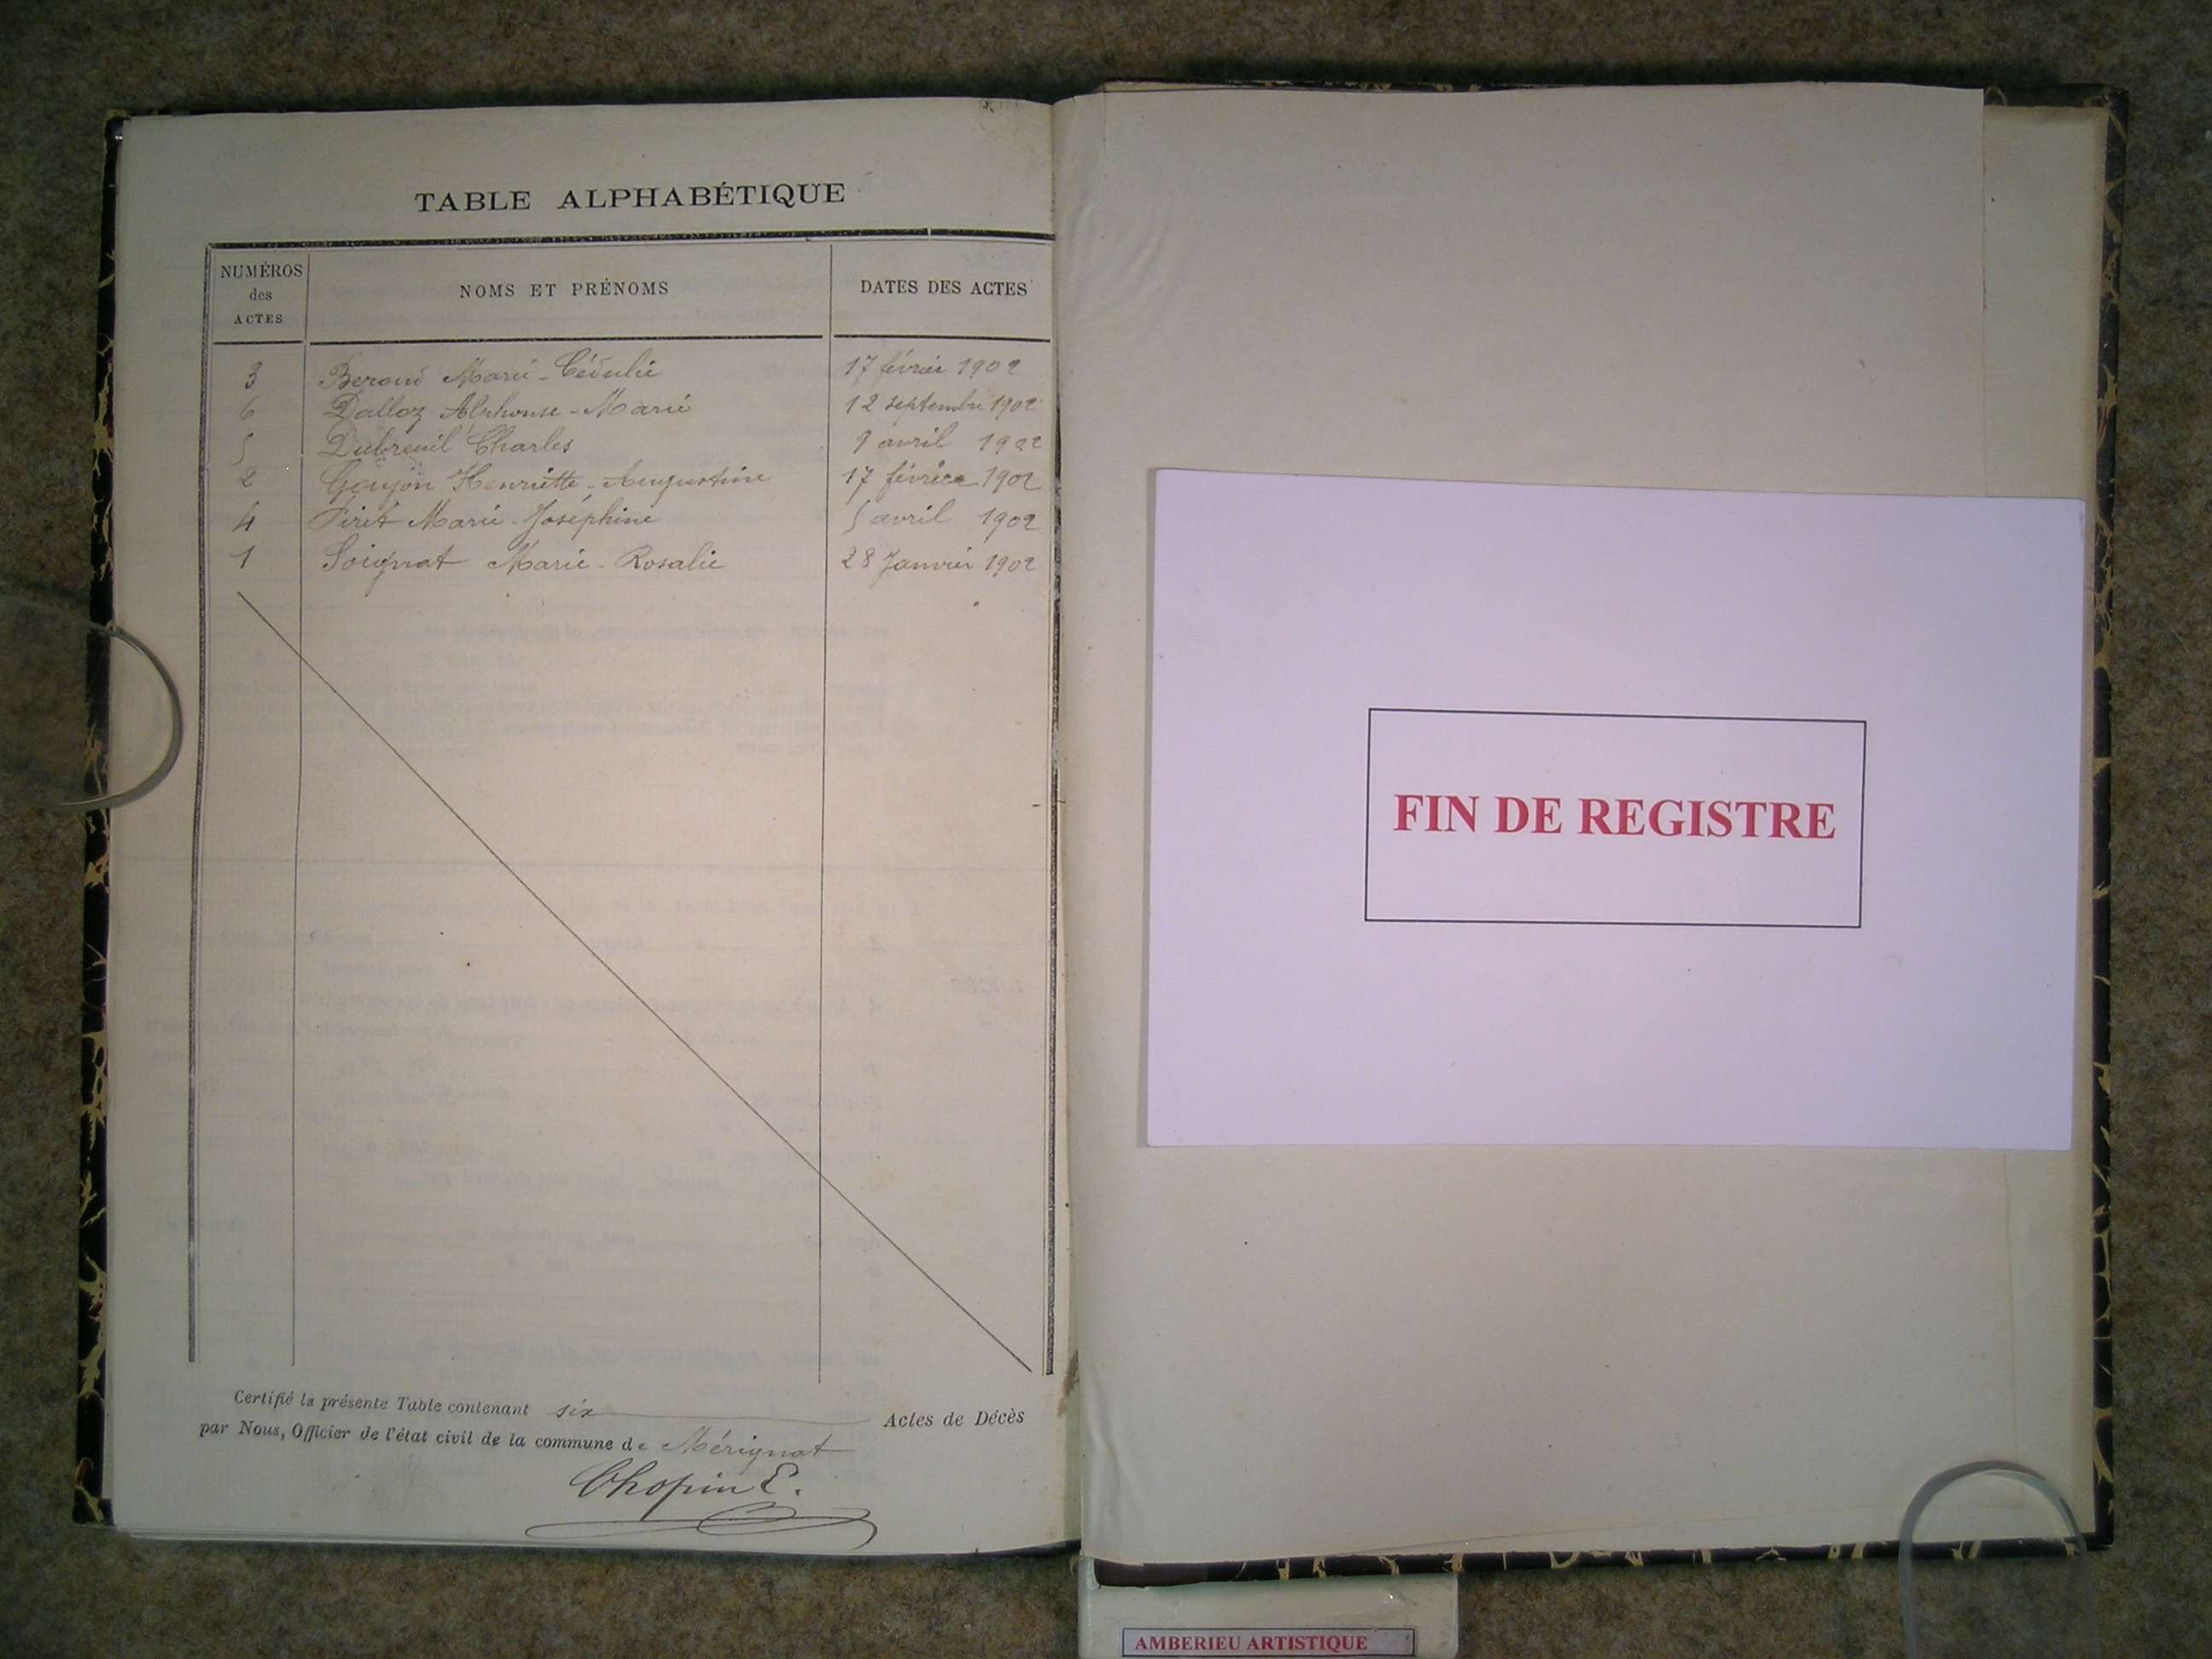 TABLE ALPHABÉTIQUE
NUMÉROS
des
ACTES
NOMS ET PRÉNOMS
DATES DES ACTES
3 Beroud Marie - 17 février 1902
6 Dalloz Alphonse - Marie 12 septembre 1902
5 Dubreuil Charles 9 avril 1902
2 Goujon Henriette - Augustine 17 février 1902
4 Piret Marie - Joséphine 5 avril 1902
1 Soignat Marie - Rosalie 28 Janvier 1902
Certifié la présente Table contenant six Actes de Décès
par Nous, Officier de l'état civil de la commune de Mérignat
Chopin E.
FIN DE REGISTRE
AMBERIEU ARTISTIQUE